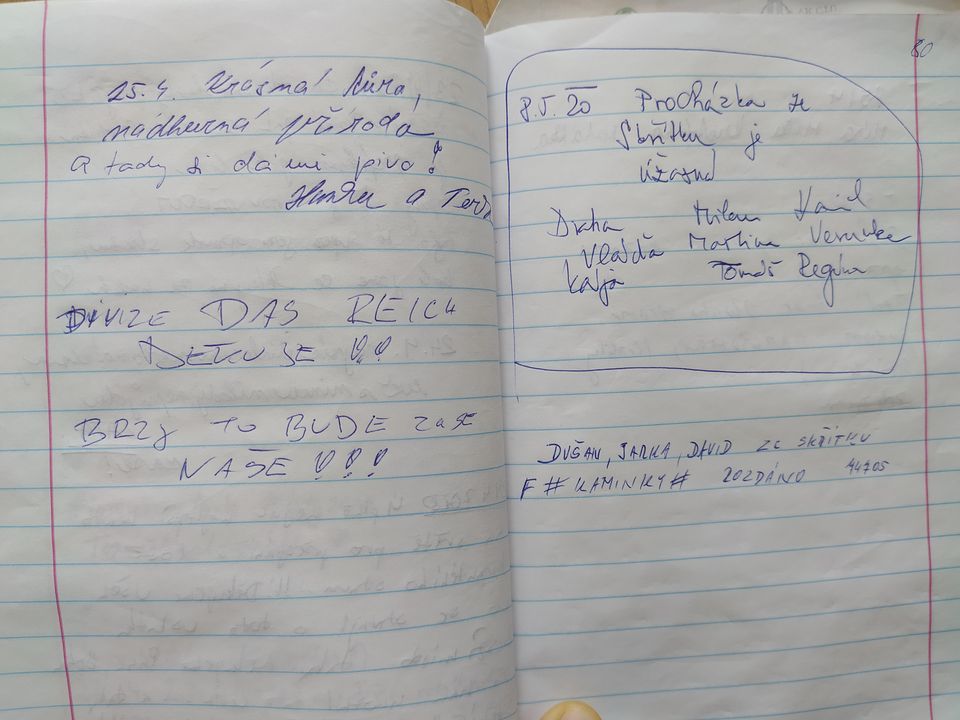 25.4. Krásná túra,
nádherná příroda
a tady si dáme pivo!
Hanka a Terka
DIVIZE DAS REICH
DĚKUJE !!
BRZY TO BUDE ZASE
NAŠE !!!
80
8.5.20 Procházka ze
Skřítku je
úžasná
Draha Milan Kamil
Vlaďa Martina Verunka
Kája Tomáš Regina
DUŠAN, JARKA, DAVID ZE SKŘÍTKU
F # KAMINKY # ROZDÁNO 74705